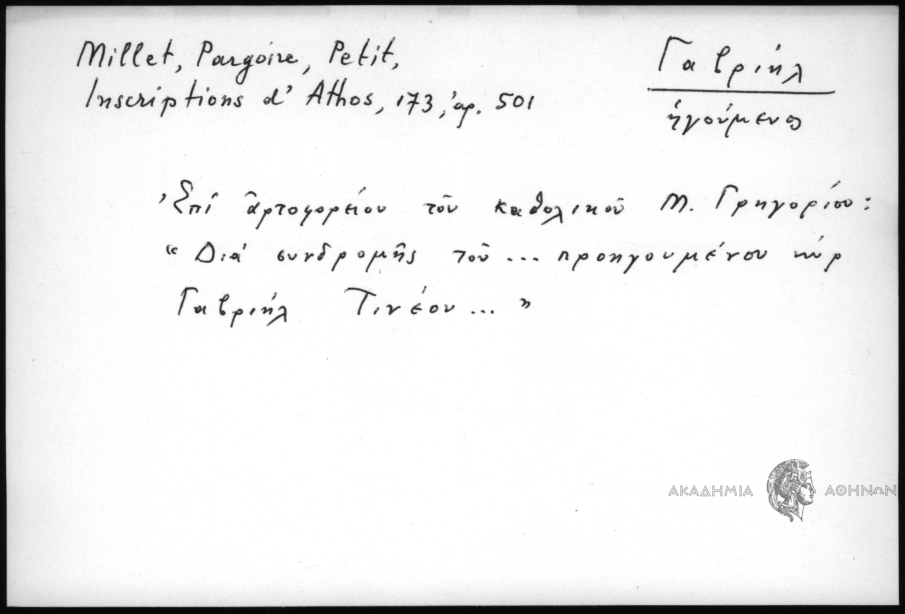 Millet, Pargoire, Petit,
Inscriptions d'Athos, 173, ἀρ. 501
Γαβριήλ
ἡγούμενος
Ἐπί ἀρτοφορείου τοῦ καθολικοῦ Μ. Γρηγορίου:
“ Διά συνδρομῆς τοῦ ... προηγουμένου κύρ
Γαβριήλ Τινέου ... ”
ΑΚΑΔΗΜΙΑ ΑΘΗΝΩΝ